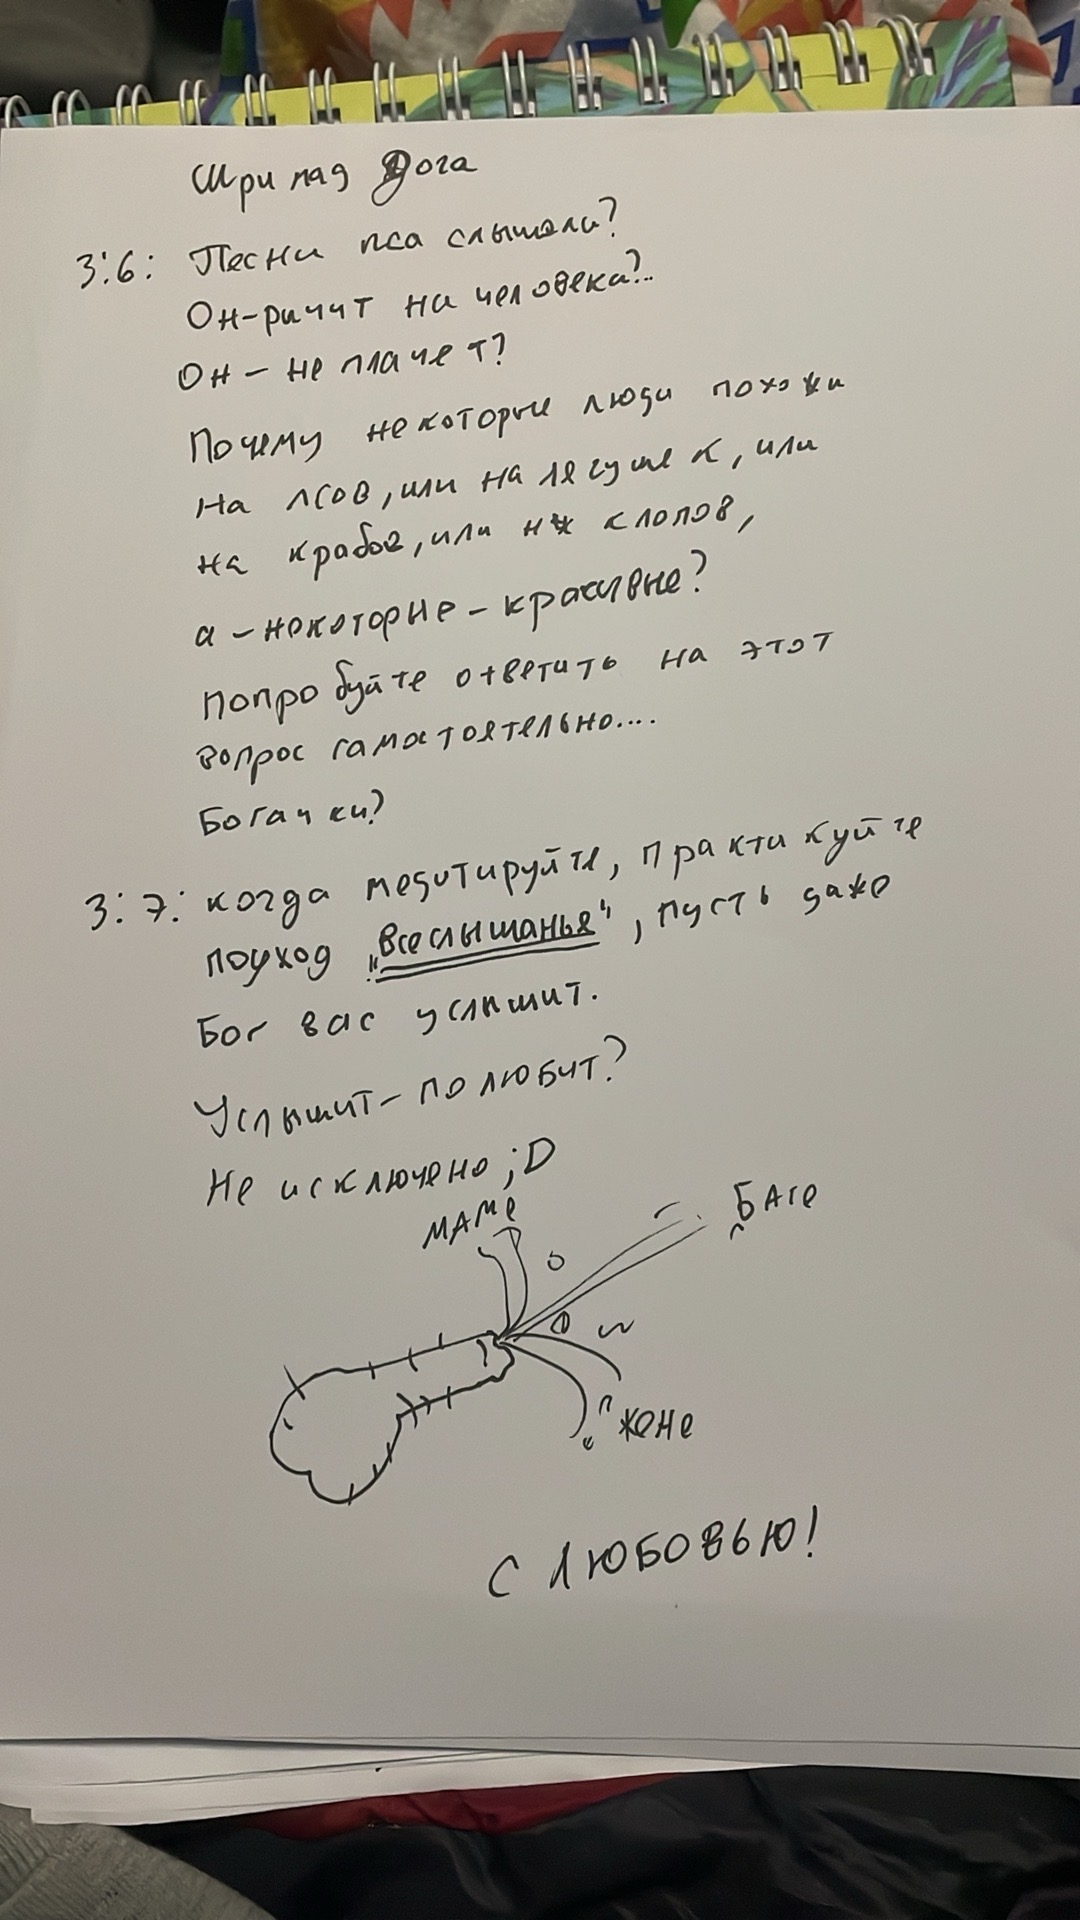 Шри пад Дога
3:6: Песни пса слышали?
Он-ричит на человека?..
Он - не плачет?
Почему некоторые люди похожи
на псов, или на лягушек, или
на крабов, или на клопов,
а - некоторые - красивые?
попробуйте ответить на этот
вопрос самостоятельно....
Богачки?
3:7: когда медитируйте, практикуйте
подход "Всеслышанья", пусть даже
Бог вас услышит.
Услышит - полюбит?
Не исключено ;D
МАМе
БАГе
жене
С ЛЮБОВЬЮ!